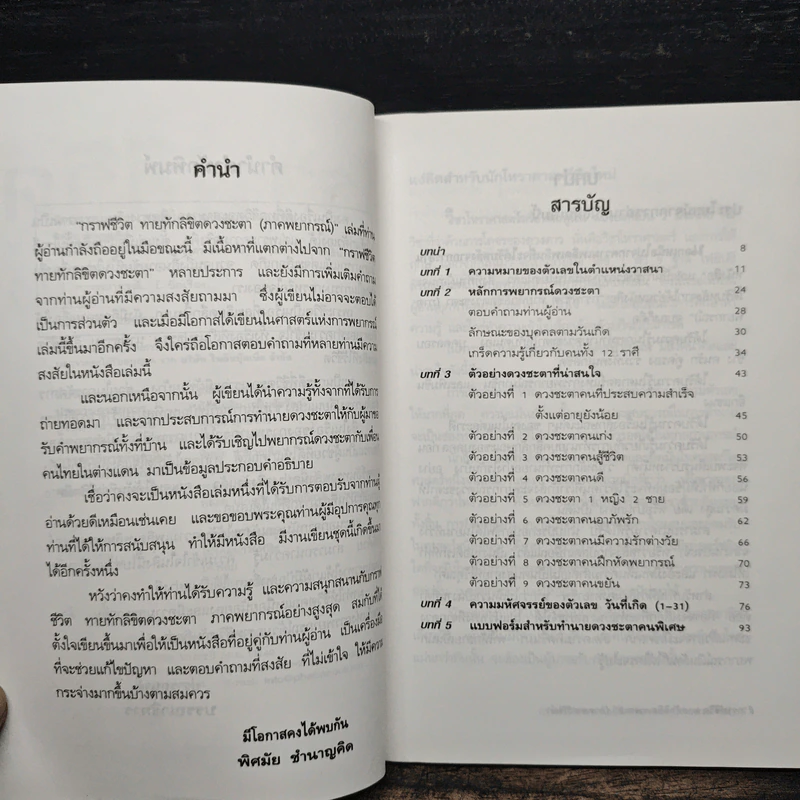 คำนำ
"กราฟชีวิต ทายทักลิขิตดวงชะตา (ภาคพยากรณ์)" เล่มที่ท่าน
ผู้อ่านกำลังถืออยู่ในมือขณะนี้ มีเนื้อหาที่แตกต่างไปจาก "กราฟชีวิต
ทายทักลิขิตดวงชะตา" หลายประการ และยังมีการเพิ่มเติมคำถาม
จากท่านผู้อ่านที่มีความสงสัยถามมา ซึ่งผู้เขียนไม่อาจจะตอบได้
เป็นการส่วนตัว และเมื่อมีโอกาสได้เขียนในศาสตร์แห่งการพยากรณ์
เล่มนี้ขึ้นมาอีกครั้ง จึงใคร่ถือโอกาสตอบคำถามที่หลายท่านมีความ
สงสัยในหนังสือเล่มนี้
และนอกเหนือจากนั้น ผู้เขียนได้นำความรู้ทั้งจากที่ได้รับการ
ถ่ายทอดมา และจากประสบการณ์การทำนายดวงชะตาให้กับผู้มาขอ
รับคำพยากรณ์ทั้งที่บ้าน และได้รับเชิญไปพยากรณ์ดวงชะตากับเพื่อน
คนไทยในต่างแดน มาเป็นข้อมูลประกอบคำอธิบาย
เชื่อว่าคงจะเป็นหนังสือเล่มหนึ่งที่ได้รับการตอบรับจากท่านผู้
อ่านด้วยดีเหมือนเช่นเคย และขอขอบพระคุณท่านผู้มีอุปการคุณทุก
ท่านที่ได้ให้การสนับสนุน ทำให้มีหนังสือ มีงานเขียนชุดนี้เกิดขึ้นมา
ได้อีกครั้งหนึ่ง
หวังว่าคงทำให้ท่านได้รับความรู้ และความสนุกสนานกับกราฟ
ชีวิต ทายทักลิขิตดวงชะตา ภาคพยากรณ์อย่างสูงสุด สมกับที่ได้
ตั้งใจเขียนขึ้นมาเพื่อให้เป็นหนังสือที่อยู่คู่กับท่านผู้อ่าน เป็นเครื่องมือ
ที่จะช่วยแก้ไขปัญหา และตอบคำถามที่สงสัย ที่ไม่เข้าใจ ให้มีความ
กระจ่างมากขึ้นบ้างตามสมควร
มีโอกาสคงได้พบกัน
พิศมัย ชำนาญคิด
สารบัญ
บทนำ 8
บทที่ 1 ความหมายของตัวเลขในตำแหน่งวาสนา 11
บทที่ 2 หลักการพยากรณ์ดวงชะตา 24
ตอบคำถามท่านผู้อ่าน 28
ลักษณะของบุคคลตามวันเกิด 30
เกร็ดความรู้เกี่ยวกับคนทั้ง 12 ราศี 34
บทที่ 3 ตัวอย่างดวงชะตาที่น่าสนใจ 43
ตัวอย่างที่ 1 ดวงชะตาคนที่ประสบความสำเร็จ
ตั้งแต่อายุยังน้อย 45
ตัวอย่างที่ 2 ดวงชะตาคนเก่ง 50
ตัวอย่างที่ 3 ดวงชะตาคนสู้ชีวิต 53
ตัวอย่างที่ 4 ดวงชะตาคนดี 56
ตัวอย่างที่ 5 ดวงชะตา 1 หญิง 2 ชาย 59
ตัวอย่างที่ 6 ดวงชะตาคนอาภัพรัก 62
ตัวอย่างที่ 7 ดวงชะตาคนมีความรักต่างวัย 66
ตัวอย่างที่ 8 ดวงชะตาคนฝึกหัดพยากรณ์ 70
ตัวอย่างที่ 9 ดวงชะตาคนขยัน 73
บทที่ 4 ความมหัศจรรย์ของตัวเลข วันที่เกิด (1-31) 76
บทที่ 5 แบบฟอร์มสำหรับทำนายดวงชะตาคนพิเศษ 93